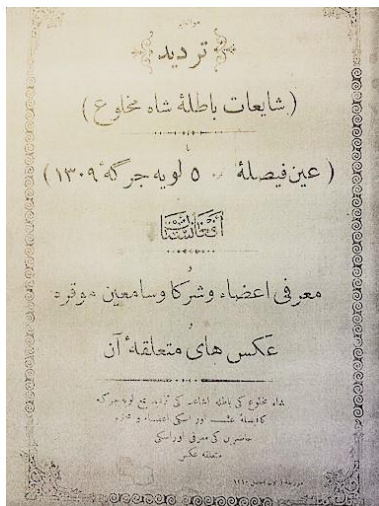 تردید
(شایعات باطلهٔ شاه مخلوع)
(عین فیصلهٔ ٥ لویه جرگهٔ ١٣٠٩)
افغانستان
و
معرفی اعضاء و شرکا و سامعین موقره
و
عکس های متعلقهٔ آن
شاه مخلوع کی باطله اشاعہ کی تردید مع لویه جرگه
کا فیصلهٔ اور اسکی اعضاء و
حاضرین کی معرفی اور اسکی
متعلقه عکس